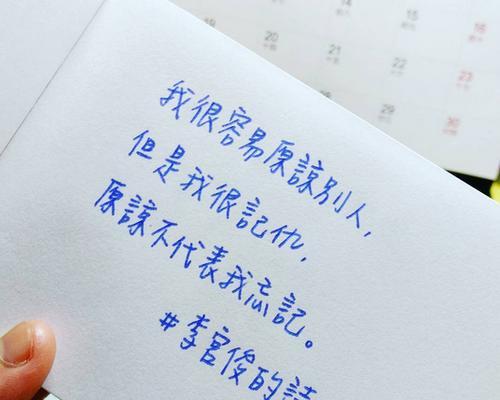 14
15
16
19
20
21
22
23
28
29
30
我很容易原諒別人,
但是我很記仇,
原諒不代表我忘記。
#李官俊的詩